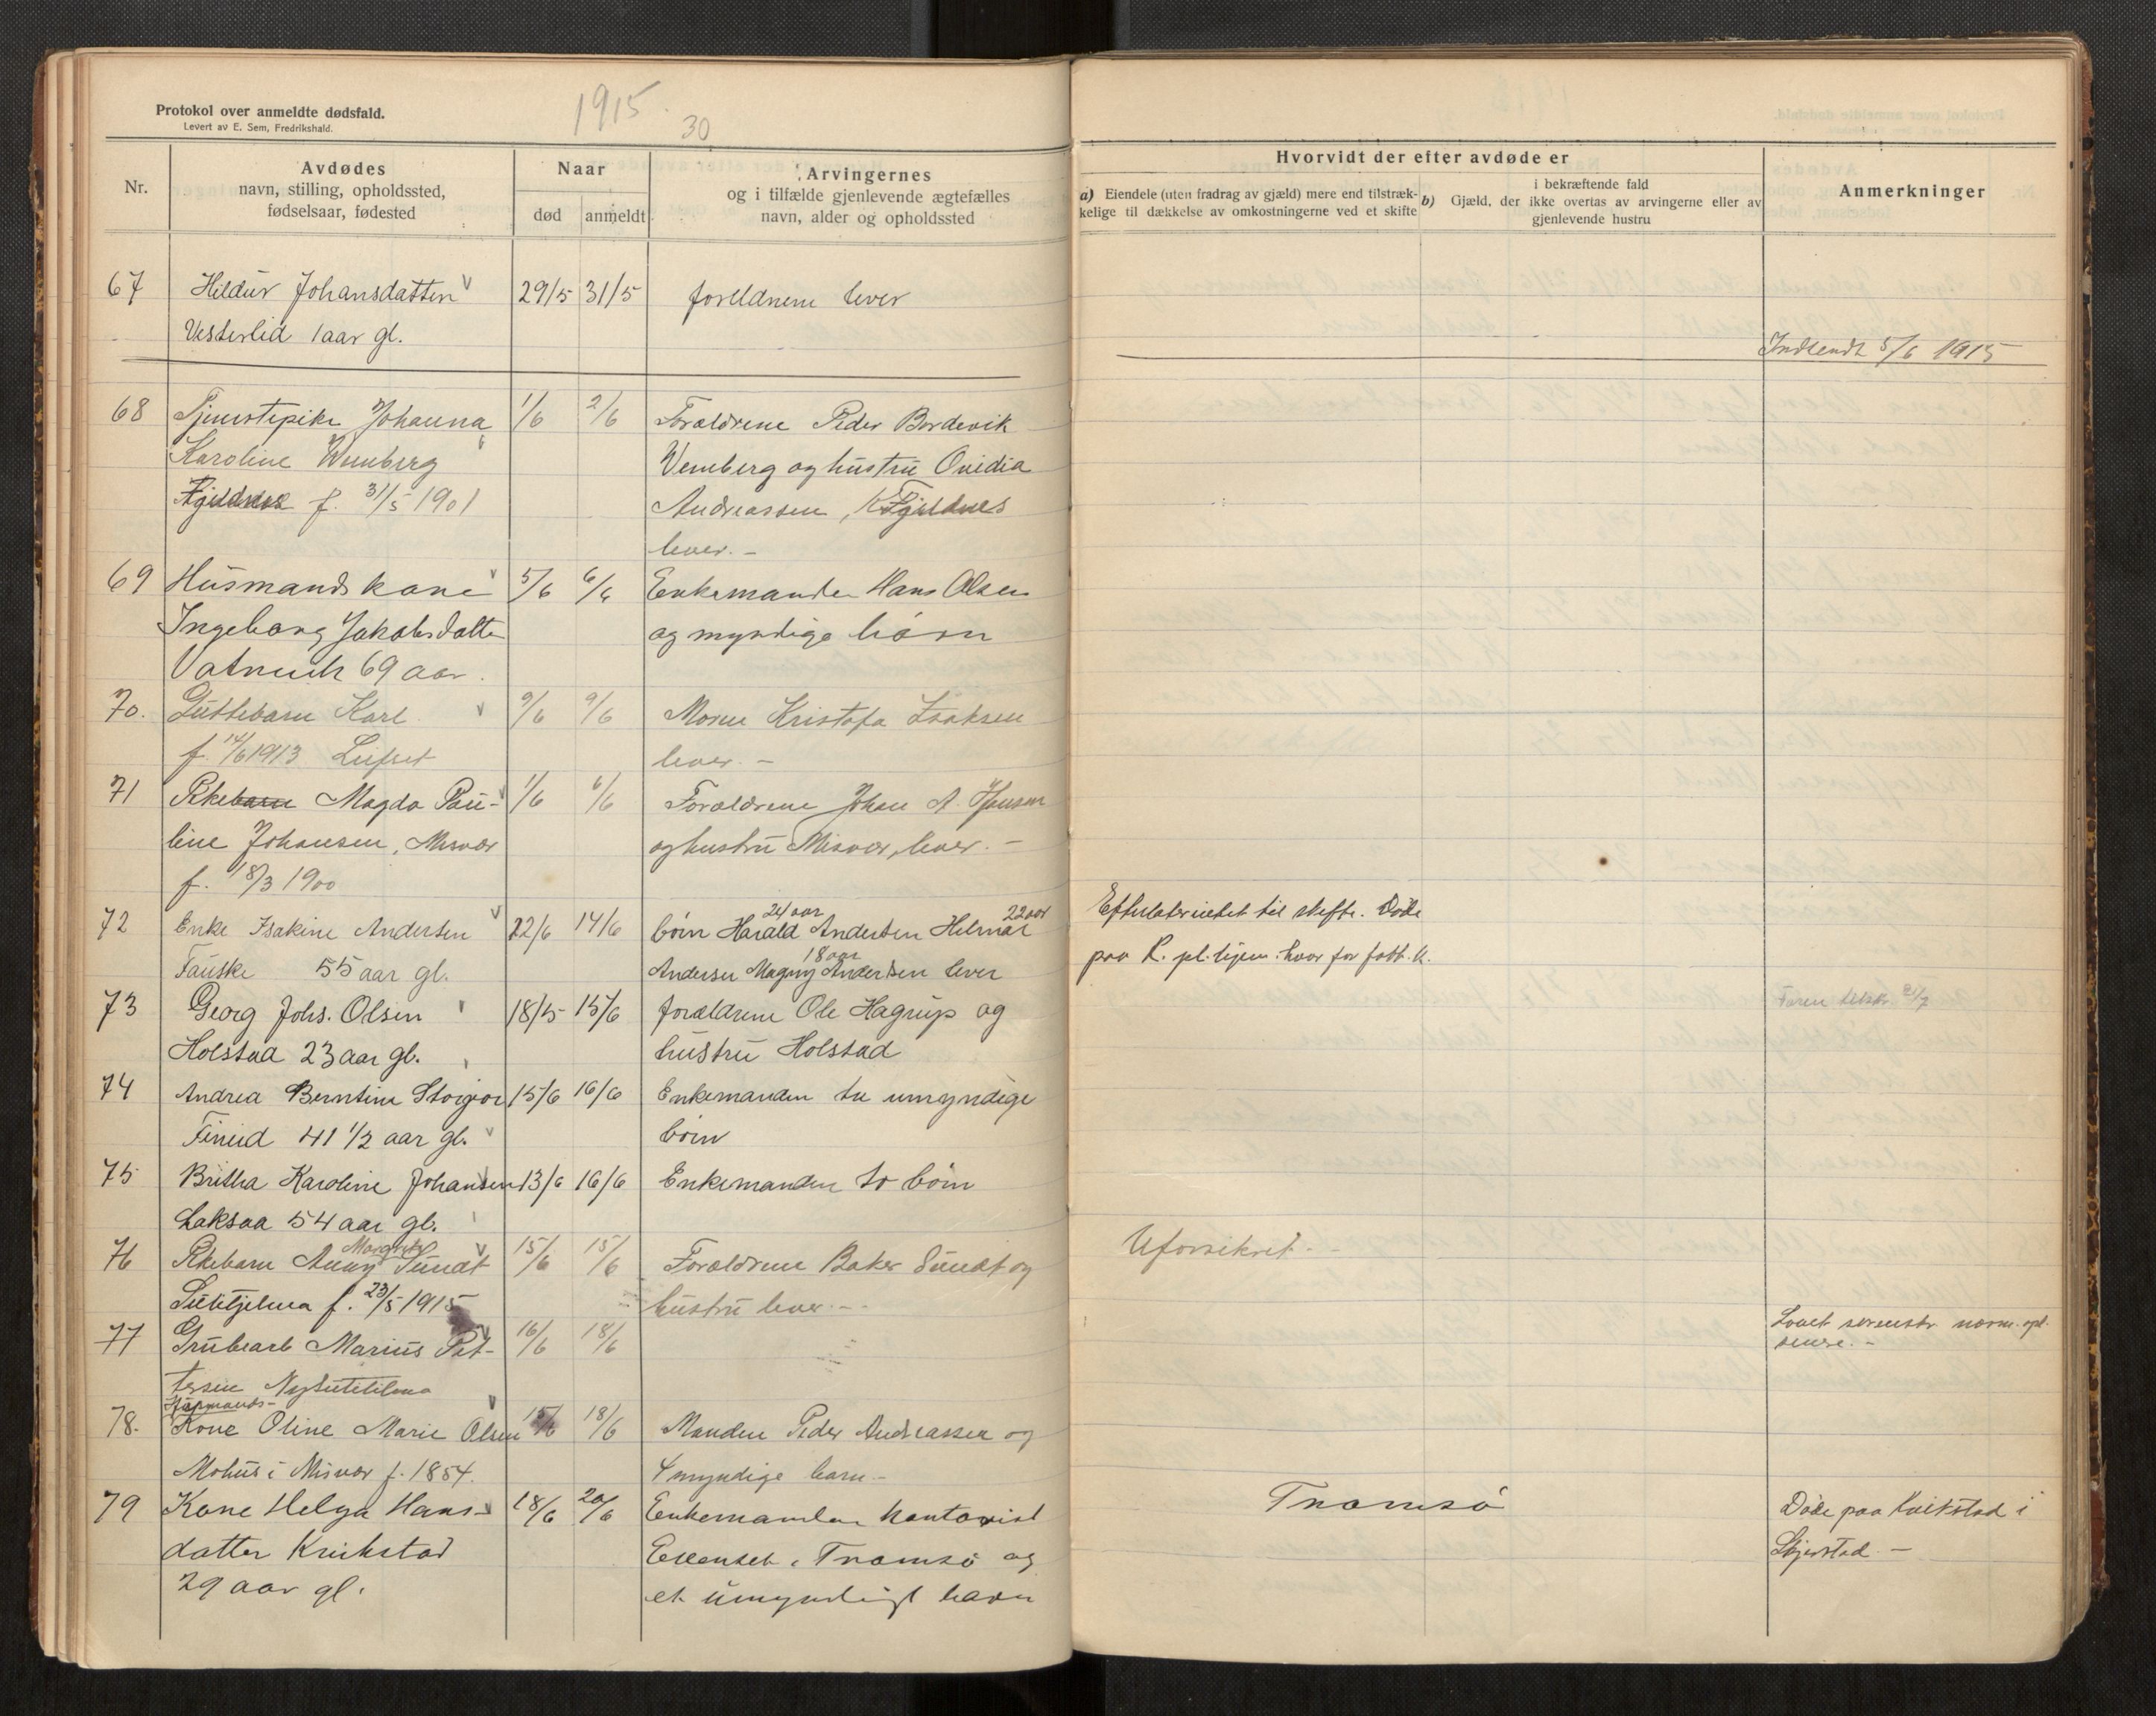 Protokol over anmeldte dødsfald.
Levert av E. Sem, Fredrikshald.
1915
30
Nr.
Avdødes
navn, stilling, opholdssted,
fødselsaar, fødested
Naar
død anmeldt
Arvingernes
og i tilfælde gjenlevende ægtefælles
navn, alder og opholdssted
Hvorvidt der efter avdøde er
a) Eiendele (uten fradrag av gjæld) mere end tilstræk-
kelige til dækkelse av omkostningerne ved et skifte
b) i bekræftende fald
Gjæld, der ikke overtas av arvingerne eller av
gjenlevende hustru
Anmerkninger
67 Hildur Johansdatter 29/5 31/5 forældrene lever
Vesterlid 1 aar gl.
Indsendt 5/6 1915
68 Tjenestepike Johanna 1/6 2/6 Forældrene Peder Bordevik
Karoline Wenberg Wenberg og hustru Ovidia
f. 31/5 1901 Andreassen, Fjeldnes
lever. -
69 Husmandskone 5/6 6/6 Enkemanden Hans Olsen
Ingeborg Jakobsdatter og myndige børn
69 aar.
70. Guttebarn Karl 9/6 9/6 Moren Kristofa Isaksen
f. 14/6 1913 lever. -
71 Pikebarn Magda Pau- 1/6 6/6 Forældrene Johan A.
line Johansen, Misvær og hustru Misvær, lever. -
f. 18/3 1900
72 Enke Isakine Andersen 12/6 14/6 børn Harald 24 aar Andersen Helmar 22 aar
Fauske 55 aar gl. Andersen Magny 18 aar Andersen lever
til skifte. Døde
paa
73 Georg Johs. Olsen 18/5 15/6 forældrene Ole Hagrup og
Holstad 23 aar gl. hustru Holstad
74 Andrea Berntine Storjor 15/6 16/6 Enkemanden tre umyndige
Fineid 41 1/2 aar gl. børn
75 Britha Karoline Johansen 13/6 16/6 Enkemanden to børn
Laksaa 54 aar gl.
76 Pikebarn Anny Margrete Sundt 15/6 15/6 Forældrene Baker Sundt og
Sulitjelma f. 23/5 1915 hustru lever. -
Uforsikret. -
77 Grubearb Marius Pet- 16/6 18/6
tersen
78. Husmands-
Kone Oline Marie Olsen 15/6 18/6 Manden Peder Andreassen og
Mohus i Misvær f. 1854. 4 myndige barn. -
79 Kone Helga Hans- 18/6 20/6 Enkemanden kontorist
datter Kvikstad i Tromsø og
29 aar gl. et umyndigt barn
Tromsø
Døde paa Kvikstad i
Skjerstad. -